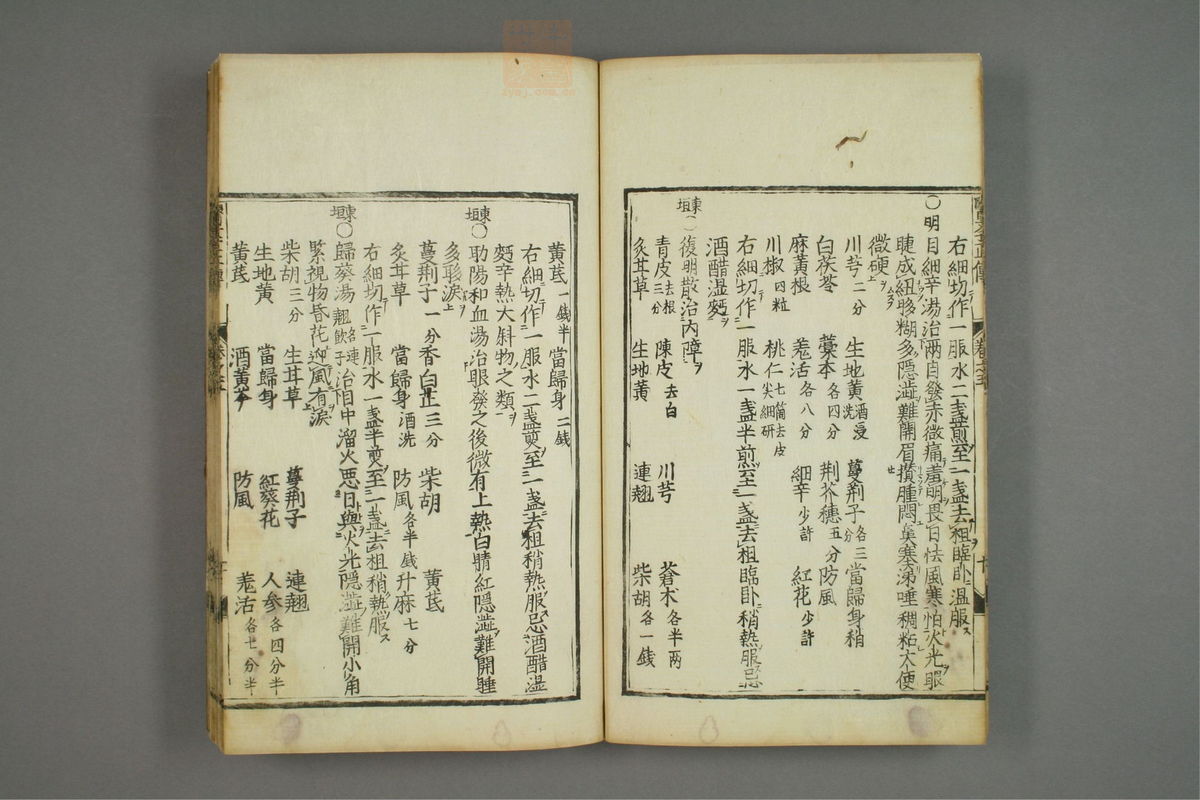 右細切作一服水二盞煎至一盞去柤臨卧温服
○明目細辛湯治兩目發赤微痛羞明畏日怯風寒怕火光眼
睫成紐眵糊多隱澁難開眉攅腫悶鼻塞涕唾稠粘大便
微硬
川芎二分 生地黄酒浸洗 蔓荆子各三分 當歸身稍
白茯苓 藁本各四分 荆芥穗五分 防風
麻黄根 羗活各八分 細辛少許 紅花少許
川椒四粒 桃仁七箇去皮尖細研
右細切作一服水一盞半煎至一盞去柤臨卧稍熱服忌
酒醋湿麪
東垣○復明散治内障
青皮去根三分 陳皮去白 川芎 蒼术各半兩
炙甘草 生地黄 連翹 柴胡各一錢
黄芪一錢半 當歸身二錢
右細切作一服水二盞煎至一盞去柤稍熱服忌酒醋湿
麪辛熱大料物之類
東垣○助陽和血湯治眼發之後微有上熱白睛紅隱澁難開腫
多眵淚
蔓荆子一分 香白芷三分 柴胡 黄芪
炙甘草 當歸身酒洗 防風各半錢 升麻七分
右細切作一服水一盞半煎至一盞去柤稍熱服
東垣○歸葵湯一名連翹飲子治目中溜火惡日與火光隱澁難開小角
緊視物昏花迎風有淚
柴胡三分 生甘草 蔓荆子 連翹
生地黄 當歸身 紅葵花 人參各四分半
黄芪 酒黄芩 防風 羗活各七分半